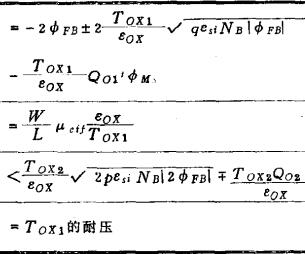 = -2 φ_FB ± 2 T_OX1/ε_OX √(qe_si N_B |φ_FB|)
- T_OX1/ε_OX Q_O1' φ_M、
= W/L μ_eif ε_OX/T_OX1
< T_OX2/ε_OX √(2pe_si N_B|2 φ_FB|) ∓ T_OX2 Q_O2/ε_OX
= T_OX1的耐压